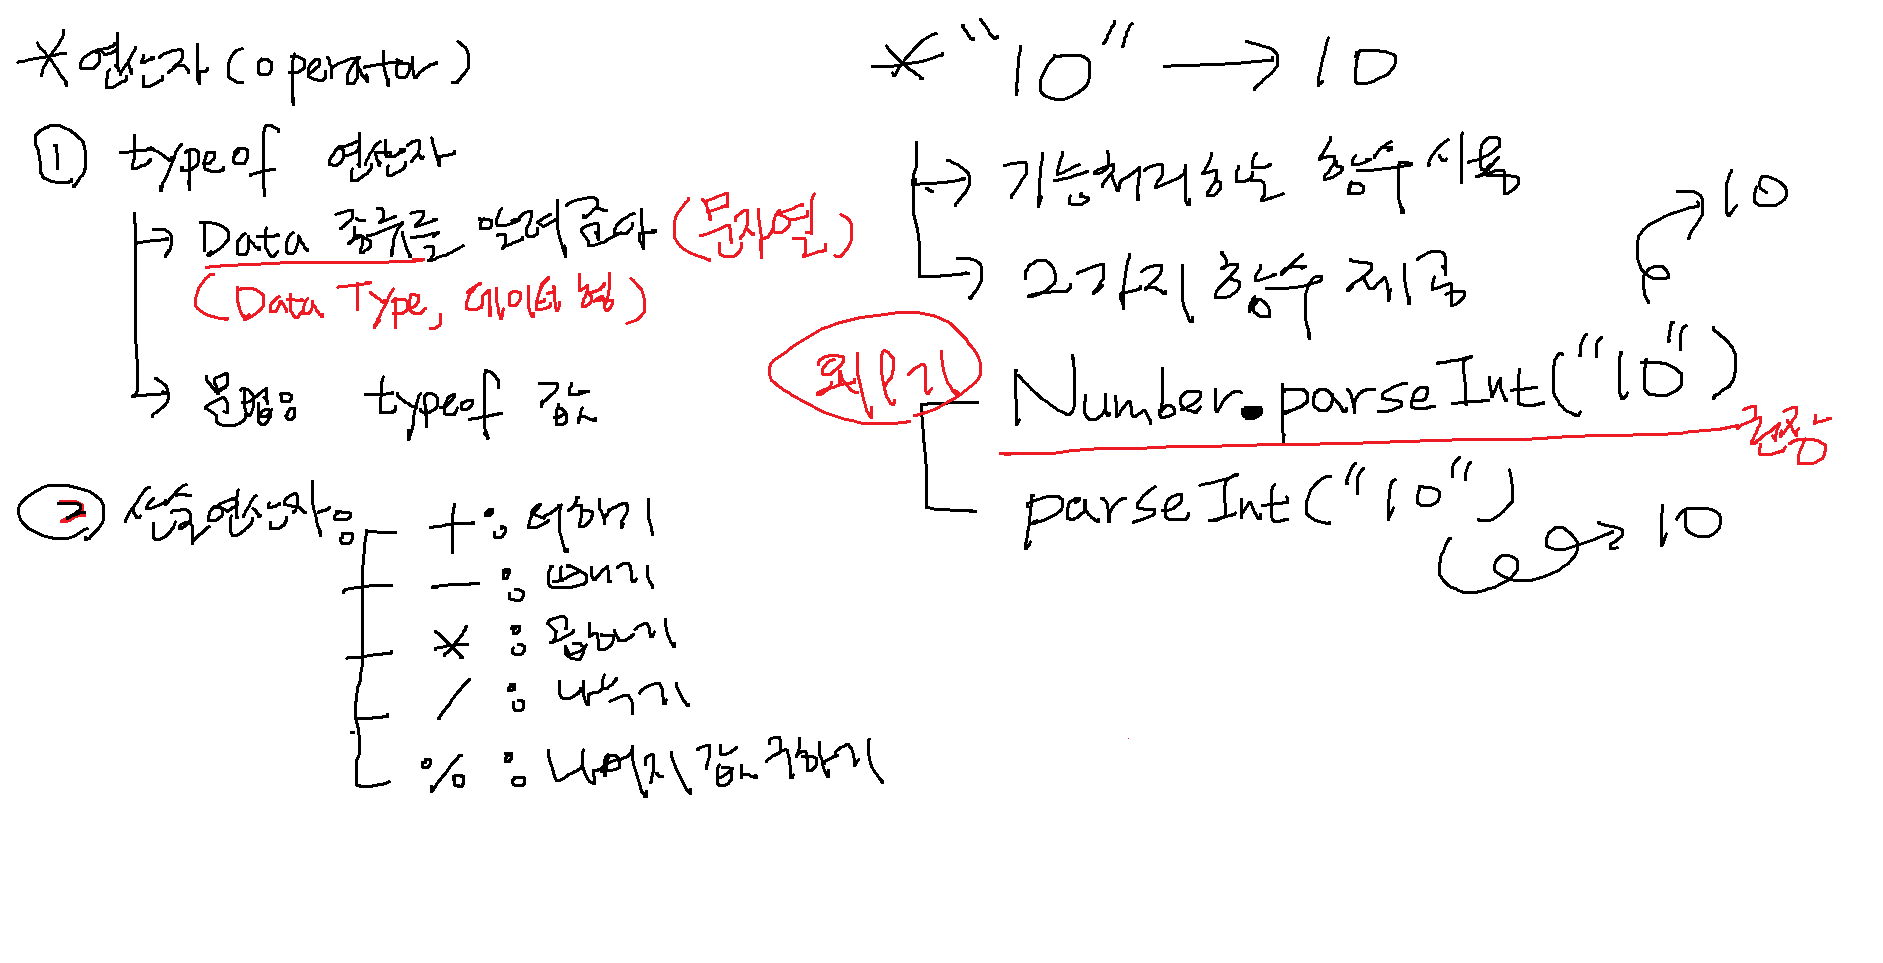 * 연산자(operator)
① typeof 연산자
→ Data 종류를 알려준다 (문자열)
(Data Type, 데이터 형)
→ 문법: typeof 값
② 산술연산자:
+ : 더하기
- : 빼기
* : 곱하기
/ : 나누기
% : 나머지 값 구하기
* "10" → 10
→ 기능처리하는 함수 사용
→ 2가지 함수 제공
Number.parseInt("10") → 10
권장
parseInt("10") → 10